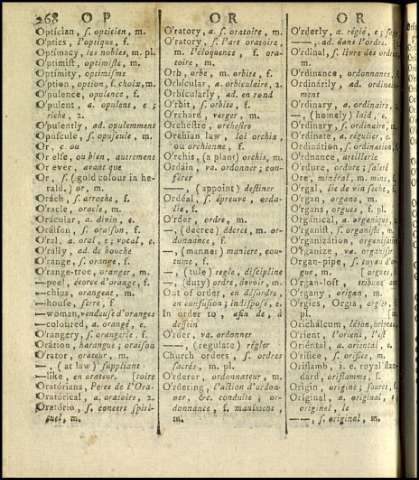 268 O P
O R
O R
Optician, s. opticien, m.
O'ptics, l'optique, f.
Optimacy, les nobles, m. pl.
Optimist, optimiste, m.
Optimity, optimisme
Option, option, f. choix, m.
Opulence, opulence, f.
O'pulent, a. opulent, e;
riche, 2.
O'pulently, ad. opulemment
Opuscule, s. opuscule, m.
Or, c. ou
Or else, ou bien, autrement
Or ever, avant que
Or, s. (gold colour in he-
rald.) or, m.
Orach, s. arroche, f.
O'racle, oracle, m.
Oracular, a. divin, e;
Oraison, s. oraison, f.
O'ral, a. oral, e; vocal, e.
O'rally, ad. de bouche
O'range, s. orange, f.
O'range-tree, oranger, m.
—peel, écorce d'orange, f.
—chips, orangeat, m.
—house, serre, f.
—woman, vendeuse d'oranges
—coloured, a. orangé, e.
O'rangery, s. orangerie, f.
Oration, harangue, oraison
O'rator, orateur, m.
—, (at law) suppliant
—like, en orateur, [toire
Oratórians, Peres de l'Ora-
Oratórical, a. oratoire, 2.
Oratório, s. concert spiri-
tuel, m.
O'ratory, a. s. oratoire, m.
O'ratory, s. l'art oratoire,
m. l'éloquence, f. ora-
toire, m.
Orb, orbe, m. orbite, f.
Orbicular, a. orbiculaire, 2.
Orbicularly, ad. en rond
O'rbit, s. orbite, f.
O'rchard, verger, m.
Orchestre, orchestre
Orchian law, loi orchia,
ou orchienne, f.
O'rchis, (a plant) orchis, m.
Ordáin, va. ordonner; con-
férer
—, (appoint) destiner
Ordéal, s. épreuve, orda-
lie, f.
O'rder, ordre, m.
—, (decree) décret, m. or-
donnance, f.
—, (manner) maniere, cou-
tume, f.
—, (rule) regle, discipline
—, (duty) ordre, devoir, m.
Out of order, en désordre,
en confusion; indisposé, e.
In order to, afin de, à
dessein
O'rder, va. ordonner
—, (regulate) régler
Church orders, s. ordres
sacrés, m. pl.
O'rderer, ordonnateur, m.
O'rdering, l'action d'ordon-
ner, &c. conduite; or-
donnance, f. maniment,
m.
O'rderly, a. réglé, e;
—, ad. dans l'ordre.
O'rdinal, s. livre des ordres,
m.
O'rdinance, ordonnance,
O'rdinárily, ad. ordinaire-
ment
O'rdinary, a. ordinaire,
—, (homely) laid, e.
O'rdinary, s. ordinaire, m.
O'rdinate, a. régulier,
Ordinátion, ordination,
O'rdnance, artillerie
O'rdure, ordure; saleté
Ore, minéral, m. mine, f.
O'rgal, lie de vin seche, f.
O'rgan, organe, m.
O'rgans, orgues, f. pl.
Orgánical, a. organique,
O'rganist, s. organiste, m.
O'rganization, organisation
O'rganize, va. organiser
Organ-pipe, s. tuyau d'or-
gue, m.
Organ-loft, tribune
O'rgany, origan, m.
O'rgies, Orgia, orgies, f.
pl.
Orichálcum, léton,
O'rient, l'orient, l'est
Oriéntal, a. oriental,
O'rifice, s. orifice, m.
Oriflamb, i. e. royal stan-
dard, oriflamme, f.
Origin, origine; source, f.
Original, a. original,
original, le
—, s. original, m.